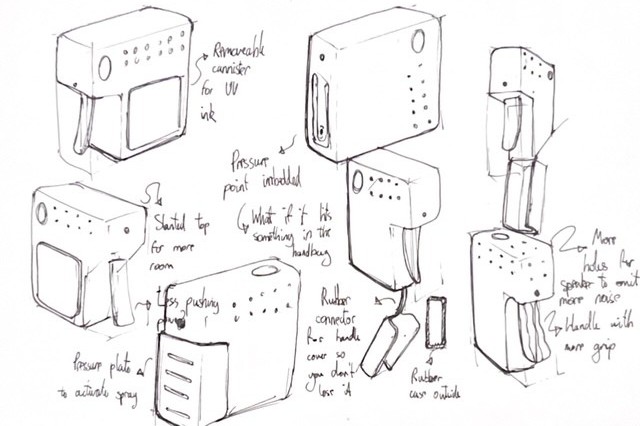 Removeable
cannister
for UV
ink
Pressure
point imbedded
What if it hits
something in the
handbag
Slanted top
for more
room
Less pushing
Pressure plate
to activate spray
Rubber
connector
for handle
cover so
you don't
lose it
Rubber
case outside
More
holes for
speaker to emit
more noise
Handle with
more grip